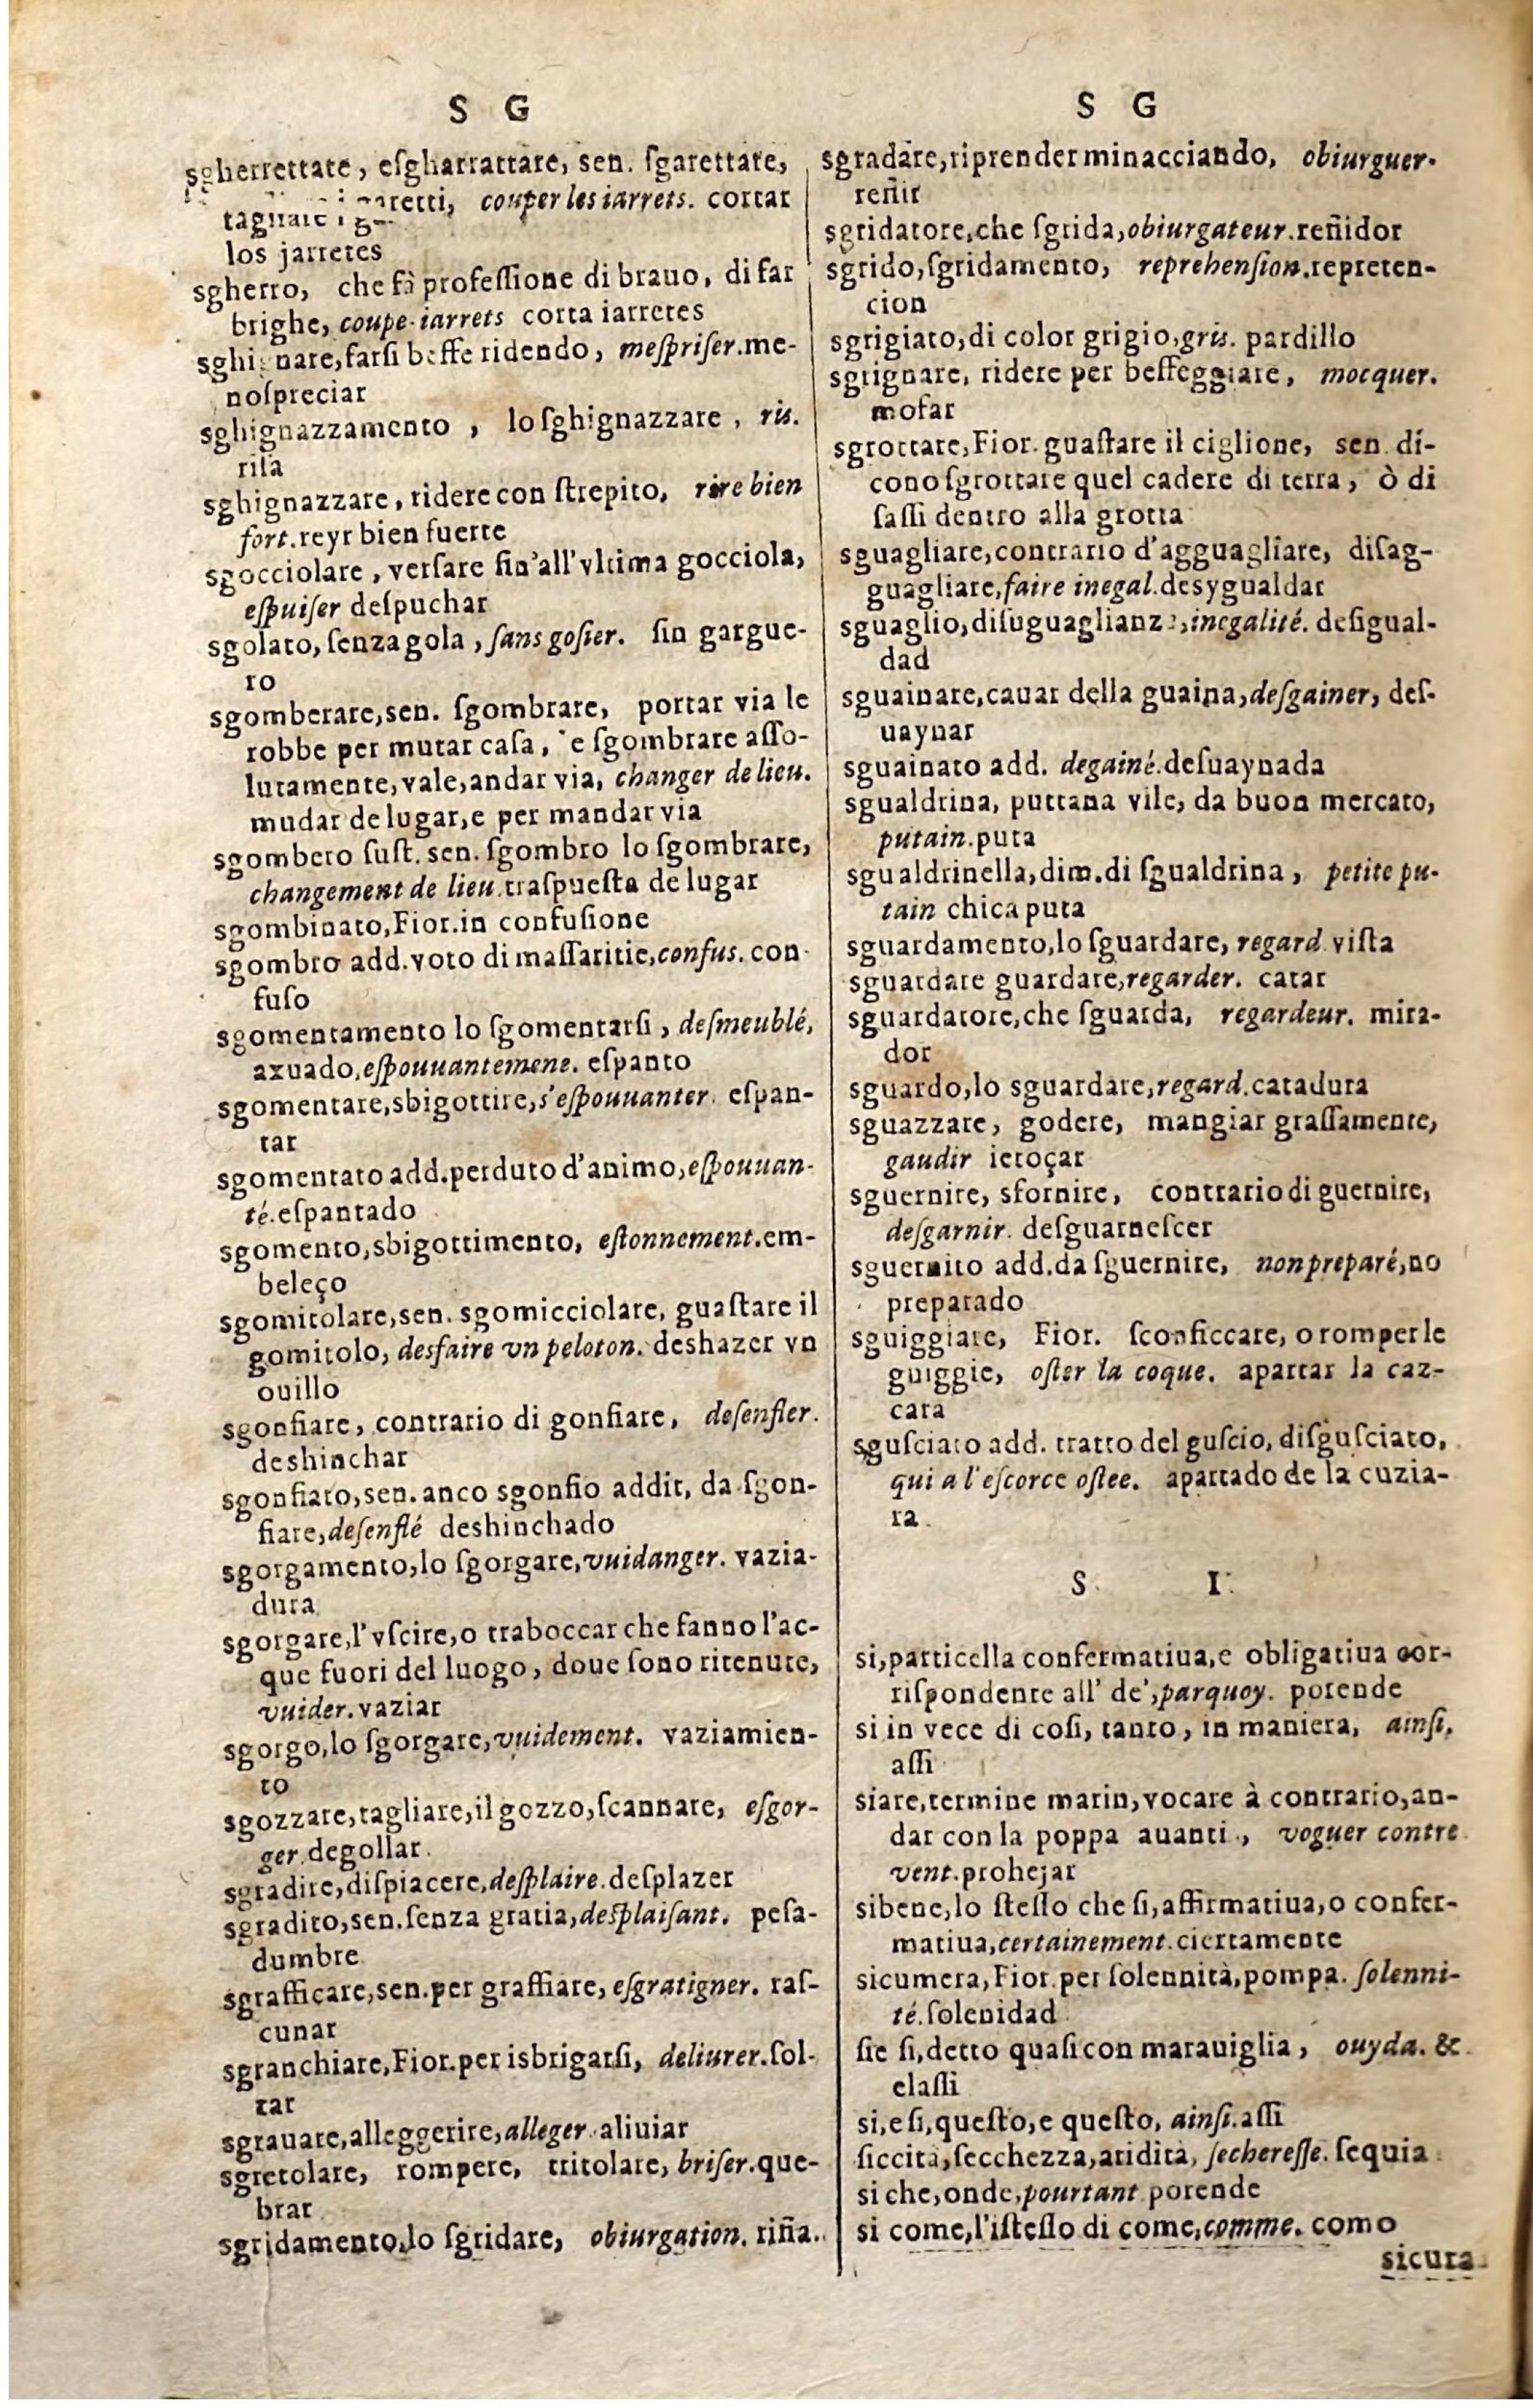 S G
sgherrettate, eſgharrattare, sen. ſgarettare,
tagliare i garetti, couper les iarrets. cortar
los jarretes
sgherro, che fà profeſſione di brauo, di far
brighe, coupe-iarrets corta iarretes
sghignare, farſi beffe ridendo, meſpriſer. me-
noſpreciar
sghignazzamento, lo ſghignazzare, ris.
riſa
sghignazzare, ridere con ſtrepito, rire bien
fort. reyr bien fuerte
sgocciolare, verſare fin'all'vltima gocciola,
eſpuiſer deſpuchar
sgolato, ſenza gola, ſans goſier. ſin gargue-
ro
sgomberare, sen. ſgombrare, portar via le
robbe per mutar caſa, e ſgombrare aſſo-
lutamente, vale, andar via, changer de lieu.
mudar de lugar, e per mandar via
sgombero ſuſt. sen. ſgombro lo ſgombrare,
changement de lieu. traſpueſta de lugar
sgombinato, Fior. in confuſione
sgombro add. voto di maſſaritie, confus. con-
fuſo
sgomentamento lo ſgomentarſi, deſmeublé,
axuado, eſpouuantemene. eſpanto
sgomentare, sbigottire, s'eſpouuanter. eſpan-
tar
sgomentato add. perduto d'animo, eſpouuan-
té. eſpantado
sgomento, sbigottimento, eſtonnement. em-
beleço
sgomitolare, sen. sgomicciolare, guaſtare il
gomitolo, desfaire vn peloton. deshazer vn
ouillo
sgonfiare, contrario di gonfiare, deſenfler.
deshinchar
sgonfiato, sen. anco sgonfio addit, da ſgon-
fiare, deſenflé deshinchado
sgorgamento, lo ſgorgare, vuidanger. vazia-
dura
sgorgare, l'vſcire, o traboccar che fanno l'ac-
que fuori del luogo, doue ſono ritenute,
vuider. vaziar
sgorgo, lo ſgorgare, vuidement. vaziamien-
to
sgozzare, tagliare, il gozzo, ſcannare, eſgor-
ger. degollar.
sgradire, diſpiacere, deſplaire. deſplazer
sgradito, sen. ſenza gratia, deſplaiſant. peſa-
dumbre
sgrafficare, sen. per graffiare, eſgratigner. raſ-
cunar
sgranchiare, Fior. per isbrigarſi, deliurer. ſol-
tar
sgrauare, alleggerire, alleger. aliuiar
sgretolare, rompere, tritolare, briſer. que-
brar
sgridamento, lo ſgridare, obiurgation. riña.
S G
sgradare, riprender minacciando, obiurguer.
reñir
sgridatore, che ſgrida, obiurgateur. reñidor
sgrido, ſgridamento, reprehenſion. repreten-
cion
sgrigiato, di color grigio, gris. pardillo
sgrignare, ridere per beffeggiare, mocquer.
mofar
sgrottare, Fior. guaſtare il ciglione, sen. di-
cono ſgrottare quel cadere di terra, ò di
ſaſſi dentro alla grotta
sguagliare, contrario d'agguagliare, diſag-
guagliare, faire inegal. desygualdar
sguaglio, diſuguaglianza, inegalité. deſigual-
dad
sguainare, cauar della guaina, deſgainer, deſ-
uaynar
sguainato add. degainé. deſuaynada
sgualdrina, puttana vile, da buon mercato,
putain. puta
sgualdrinella, dim. di ſgualdrina, petite pu-
tain chica puta
sguardamento, lo ſguardare, regard. viſta
sguardare guardare, regarder. catar
sguardatore, che ſguarda, regardeur. mira-
dor
sguardo, lo sguardare, regard. catadura
sguazzare, godere, mangiar graſſamente,
gaudir ietoçar
sguernire, sfornire, contrario di guernire,
deſgarnir. deſguarneſcer
sguernito add. da ſguernire, non preparé, no
preparado
sguiggiare, Fior. ſconficcare, o romper le
guiggie, oſter la coque. apartar la caz-
cara
sguſciato add. tratto del guſcio, diſguſciato,
qui a l'eſcorce oſtee. apartado de la cuzia-
ra.
S I
si, particella confermatiua, e obligatiua cor-
riſpondente all' de', parquoy. porende
si in vece di coſi, tanto, in maniera, ainſi.
aſſi
siare, termine marin, vocare à contrario, an-
dar con la poppa auanti, voguer contre
vent. prohejar
sibene, lo ſteſſo che ſi, affirmatiua, o confer-
matiua, certainement. ciertamente
sicumera, Fior. per ſolennità, pompa. ſolenni-
té. ſolenidad
ſie ſi, detto quaſi con marauiglia, ouyda. &
elaſſi
si, e ſi, queſto, e queſto, ainſi. aſſi
ſiccità, ſecchezza, aridità, ſechereſſe. ſequia
si che, onde, pourtant porende
si come, l'iſteſſo di come, comme. como
sicura